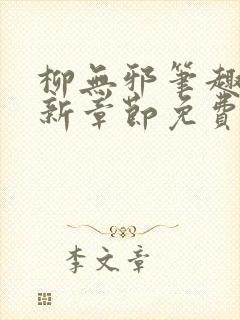 柳無邪筆趣
新章節免費
李文章